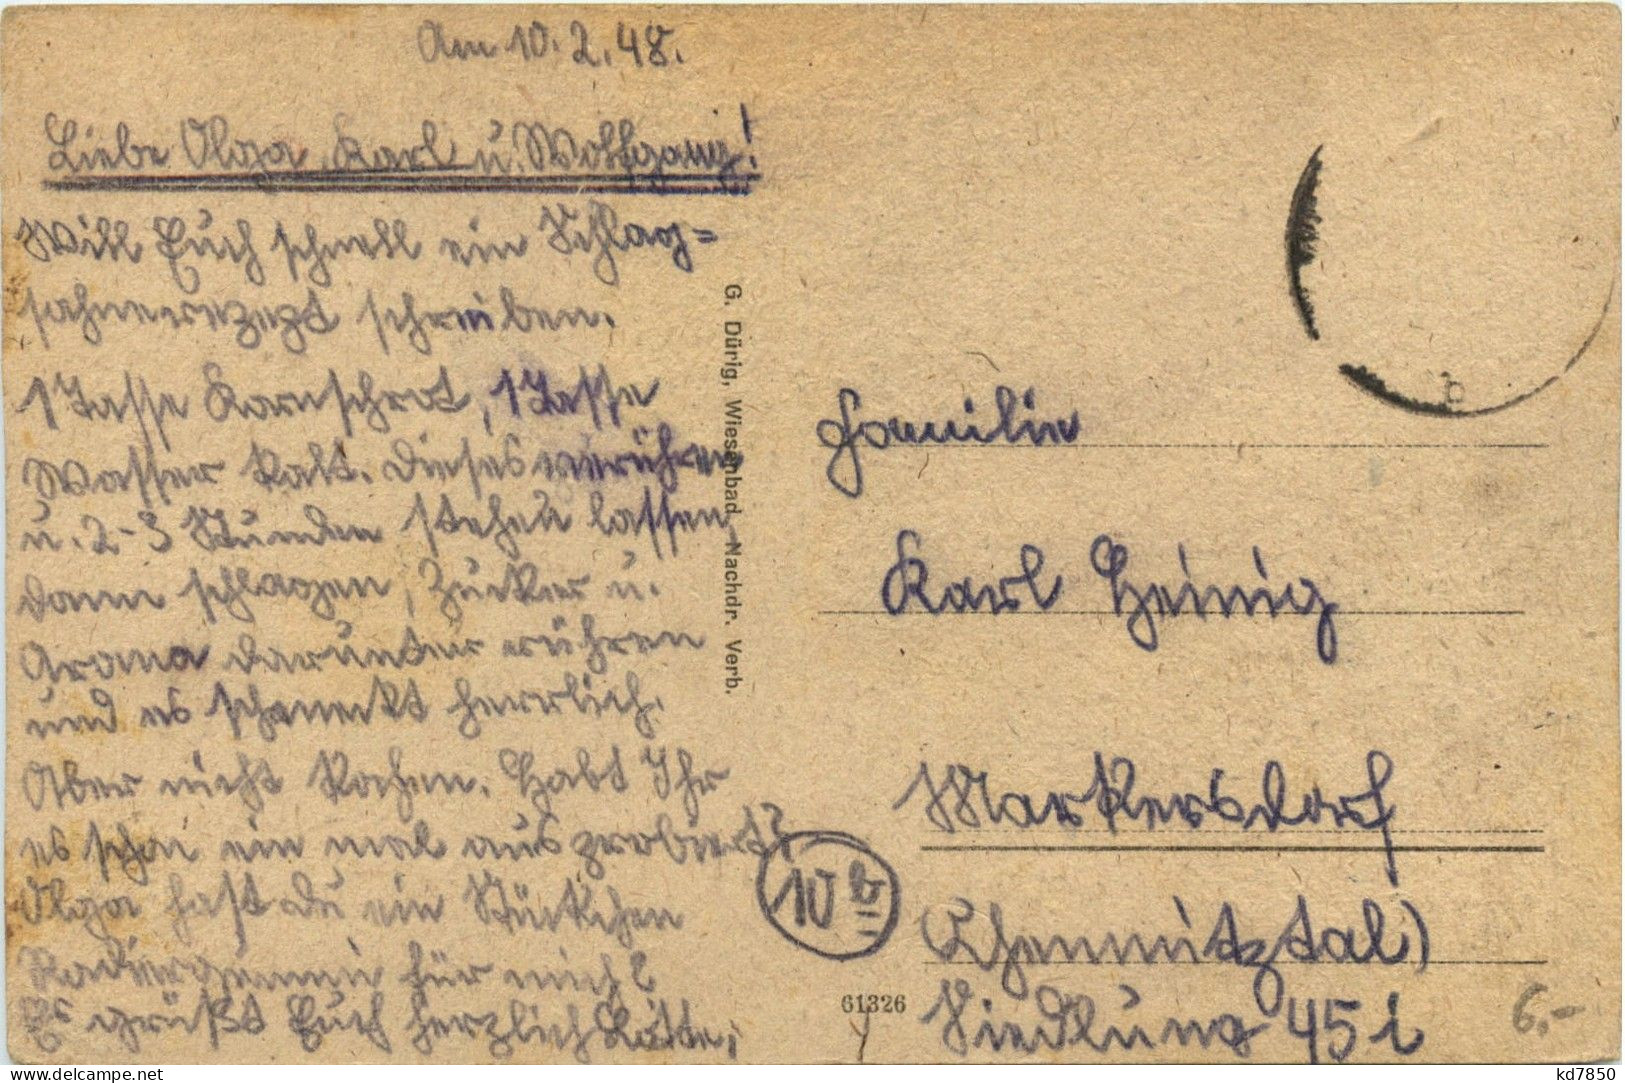 Am 10.2.48.
Liebe Olga, Karl u. Wolfgang!
Will Euch schnell ein Schlag=
sahnerezept schreiben.
1 Tasse Kornschrot, 1 Tasse
Wasser kalt. Dieses verrühren
u. 2-3 Stunden stehen lassen,
dann schlagen, Zucker u.
Aroma darunter rühren
und es schmeckt herrlich.
Aber nicht kochen. Habt Ihr
es schon ein mal ausprobiert?
Olga hast du ein Stückchen
Radiergummi für mich?
Es grüßt Euch herzlich Lotte.
G. Dürig, Wiesenbad, Nachdr. Verb.
Familie
Karl Heinig
Markersdorf
(Chemnitztal)
Siedlung 45 i
10 b
61326
b
6.-
kd7850